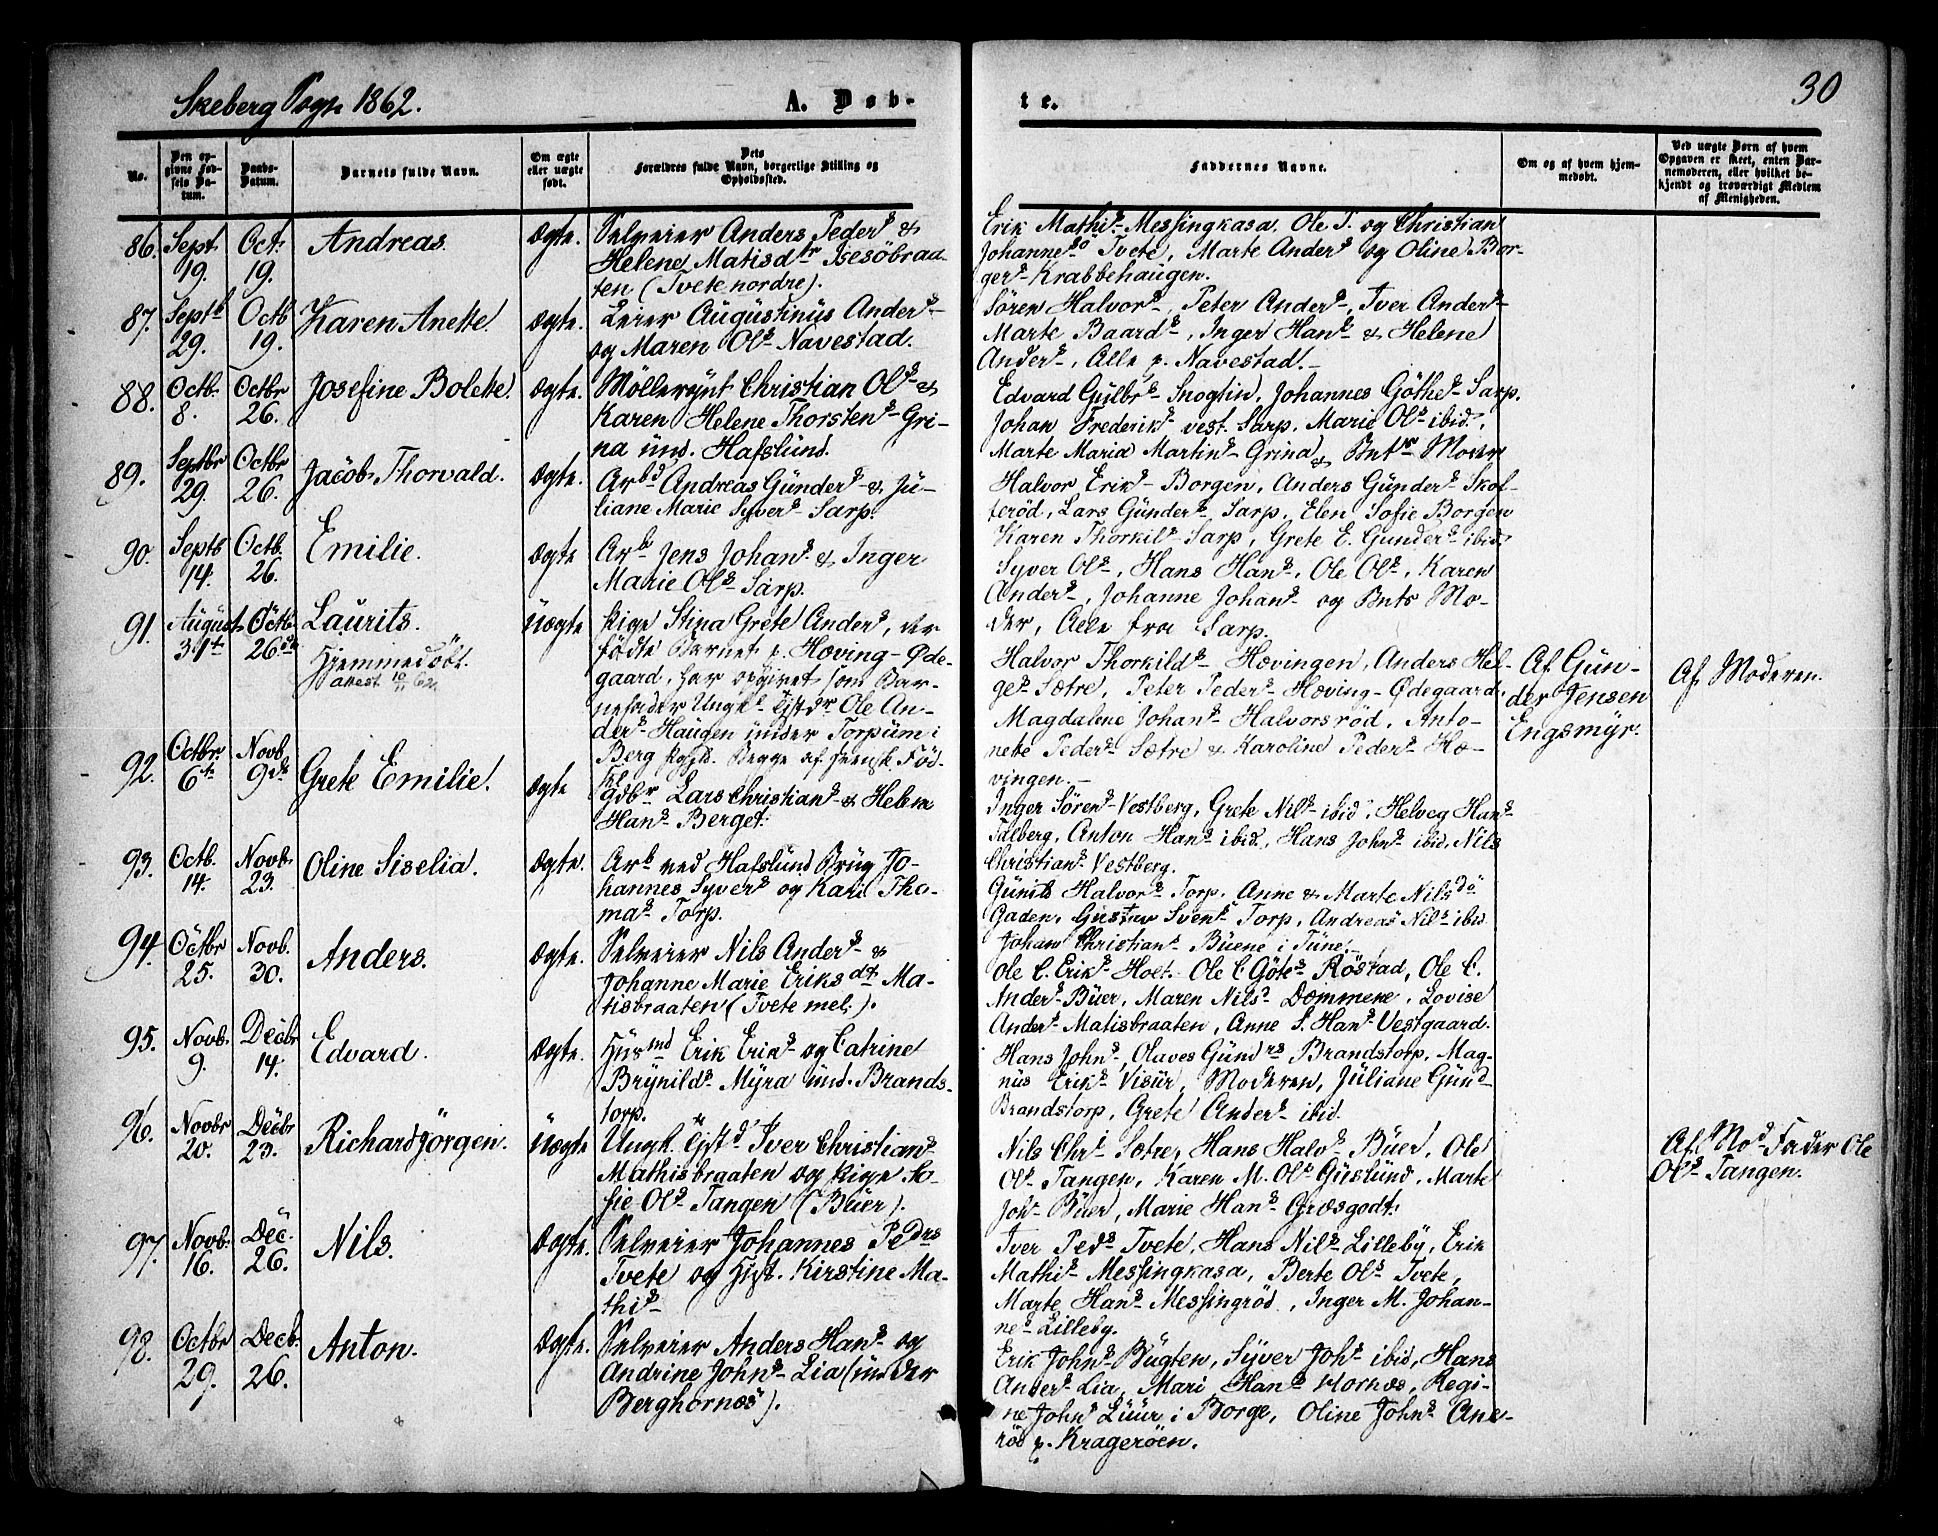 Skeberg Sogn 1862.
A. Døb-
te.
30
No.
Den opgivne Fødsels Datum.
Daabs-Datum.
Barnets fulde Navn.
Om ægte eller uægte født.
Dets Forældres fulde Navn, borgerlige Stilling og Opholdssted.
Faddernes Navne.
Om og af hvem hjemmedøbt.
Ved uægte Børn af hvem Opgaven er skeet, enten Barnemoderen, eller hvilket bekjendt og troværdigt Medlem af Menigheden.
86. Sept 19. Oct. 19. Andreas. Ægte.
Selveier Anders Peders &
Helene Matisdtr Isesöbraa-
ten (Tvete nordre).
Erik Mathis- Messingkasa, Ole T. og Christian
Johannesø Tvete, Marte Anders og Oline Bor-
gers- Krabbehaugen.
87. Septb 29. Octb 19. Karen Anette. Ægte.
Leier Augustinus Anders-
og Maren Ols Navestad.
Sören Halvors-, Peter Anders-, Iver Anders-
Marte Baards-, Inger Hans- & Helene
Anders-, Alle p. Navestad.-
88. Octb. 8. Octbr 26. Josefine Bolette. Ægte.
Möllersvt Christian Ols- &
Karen Helene Thorstens- Gri-
na und. Hafslund.
Edvard Gulbrs- Snogtin, Johannes Göthes- Sarp,
Johan Frederiks vest. Sarp, Marie Ols ibid.,
Marte Maria Martins- Grina & Bnts Moder
89. Septbr 29. Octbr 26. Jacob Thorvald. Ægte.
Arbd Andreas Gunders- & Ju-
liane Marie Syvers- Sarp.
Halvor Eriks- Borgen, Anders Gunders- Skol-
teröd, Lars Gunders- Sarp, Elen Sofie Borgen
Karen Thorkils- Sarp, Grete E. Gunders- ibid.
90. Septb 14. Octb. 26. Emilie. Ægte
Arb Jens Johans- & Inger
Marie Ols- Sarp.
Syver Ols-, Hans Hans-, Ole Ols-, Karen
Anders-, Johanne Johans- og Bnts Mo-
der, Alle fra Sarp.
91. August 31te Octb. 26de Laurits. Uægte
Hjemmedöbt.
attest 10/11 62.
Pige Stina Grete Anders, der
fødte Barnet p. Hæving-Øde-
gaard, har opgivet som Bar-
nefader Ungk. Gjstdr Ole An-
ders- Haugen under Torpum i
Berg Pgjld. Begge af svensk Föd-
Halvor Thorkilds- Hævingen, Anders Hel-
ges- Sætre, Peter Peders- Hæving-Ødegaard,
Magdalene Johans- Halvorsröd, Anto-
nette Peders- Sætre & Karoline Peders- Hæ-
vingen.-
Af Gun-
der Jensen
Engsmyr.
Af Moderen.
92. Octbr. 6te Novb. 9de Grete Emilie. Ægte
Gdbr Lars Christians- & Helene
Hans- Berget.
Inger Sörens- Vestberg, Grete Nils- ibid, Helveg Hans-
Talberg, Anton Hans- ibid., Hans Johns- ibid, Nils
Christians- Vestberg.
93. Octb. 14. Novb. 23. Oline Siselia. Ægte.
Arb ved Hafslund Brug Jo-
hannes Syvers og Kari Tho-
mas- Torp.
Gunild Halvors- Torp, Anne & Marte Nilsdö
Gaden, Gustav Svens- Torp, Andreas Nils- ibid
Johan Christians- Buene i Tune.-
94. Octbr 25. Novb. 30. Anders. Ægte.
Selveier Nils Anders- &
Johanne Marie Eriksdt. Ma-
tisbraaten (Tvete mel.).
Ole C. Eriks- Holt. Ole C. Götes- Röstad, Ole C.
Anders- Buer, Maren Nils- Dommene, Lovise
Anders- Matisbraaten, Anne S. Hans- Vestgaard.
95. Novb. 9. Decbr 14. Edvard. Ægte.
Husmd Erik Eriks- og Catrine
Brynilds- Myra und. Brands-
torp.
Hans Johns-, Olaves Gundrs Brandstorp, Mag-
nus Eriks- Visur, Moderen, Juliane Gunds-
Brandstorp, Grete Anders- ibid.
96. Novbr 20. Decbr 23. Richard Jörgen. Uægte
Ungk. Gjstd Iver Christians-
Mathisbraaten og Pige So-
fie Ols- Tangen (Buer).
Nils Chrs- Sætre, Hans Halvs- Buer, Ole
Ols- Tangen, Karen M. Ols Guslund, Marte
Johs- Buer, Marie Hans- Græsgodt.
Af Mods- Fader Ole
Ols- Tangen.
97. Novb. 16. Dec. 26. Nils. Ægte.
Selveier Johannes Pedrs
Tvete og Hust. Kirstine Ma-
this-
Iver Peds Tvete, Hans Nils- Lilleby, Erik
Mathis- Messingkasa, Berte Ols- Tvete,
Marte Hans- Messingröd, Inger M. Johan-
nes- Lilleby.
98. Octbr 29. Decb. 26. Anton. Ægte.
Selveier Anders Hans- og
Andrine Johns- Lia (under
Berghornæs).
Erik Johns- Bugten, Syver Johs- ibid, Hans
Anders- Lia, Mari Hans- Hornæs, Regi-
ne Johns- Luur i Borge, Oline Johns- Ane-
röd p. Krageröen.